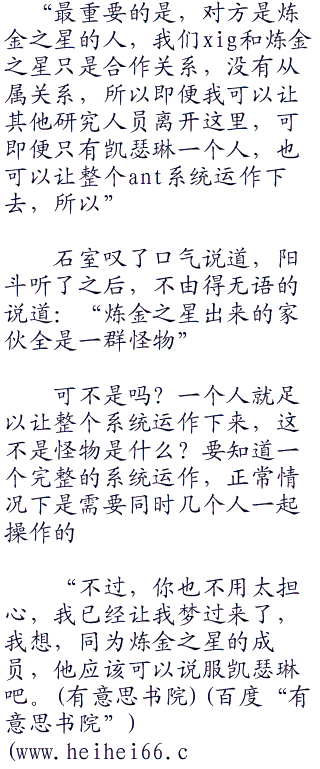 “最重要的是，对方是炼
金之星的人，我们xig和炼金
之星只是合作关系，没有从
属关系，所以即便我可以让
其他研究人员离开这里，可
即便只有凯瑟琳一个人，也
可以让整个ant系统运作下
去，所以”
石室叹了口气说道，阳
斗听了之后，不由得无语的
说道：“炼金之星出来的家
伙全是一群怪物”
可不是吗？一个人就足
以让整个系统运作下来，这
不是怪物是什么？要知道一
个完整的系统运作，正常情
况下是需要同时几个人一起
操作的
“不过，你也不用太担
心，我已经让我梦过来了，
我想，同为炼金之星的成
员，他应该可以说服凯瑟琳
吧。(有意思书院)(百度“有
意思书院”)
(www.heihei66.c